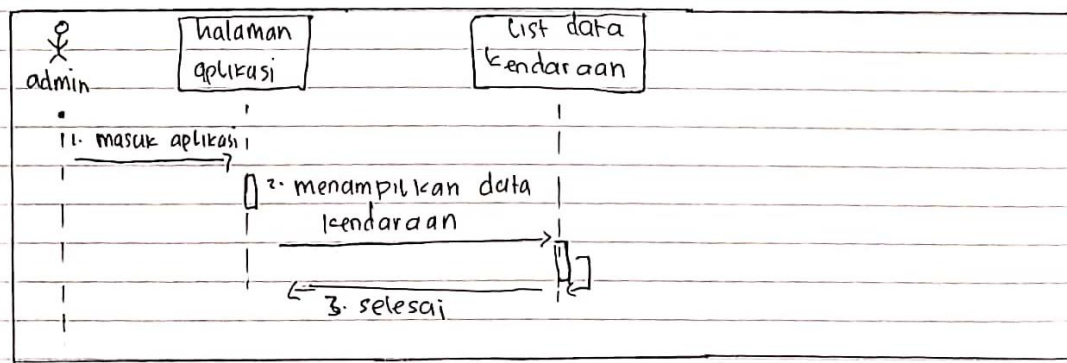 halaman
aplikasi
list data
kendaraan
admin
1. masuk aplikasi
2. menampilkan data
kendaraan
3. selesai